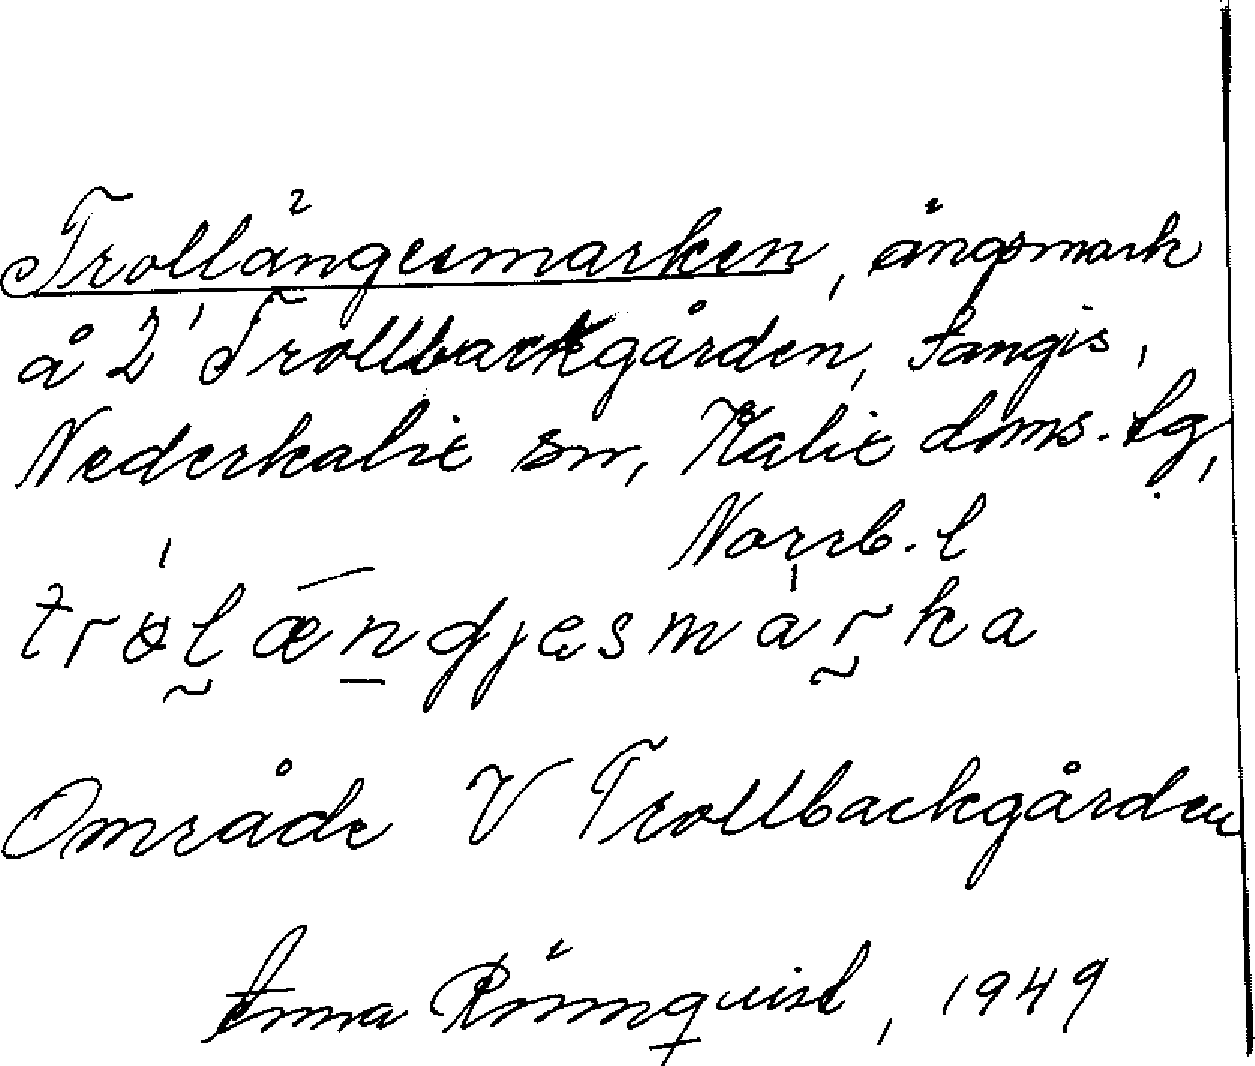 Trollängesmarken, ängsmark
å 2' Trollbackgården, Sangis,
Nederkalix sn, Kalix doms. lg,
Norrb. l
Område V Trollbackgården
Anna Rönnqvist, 1949